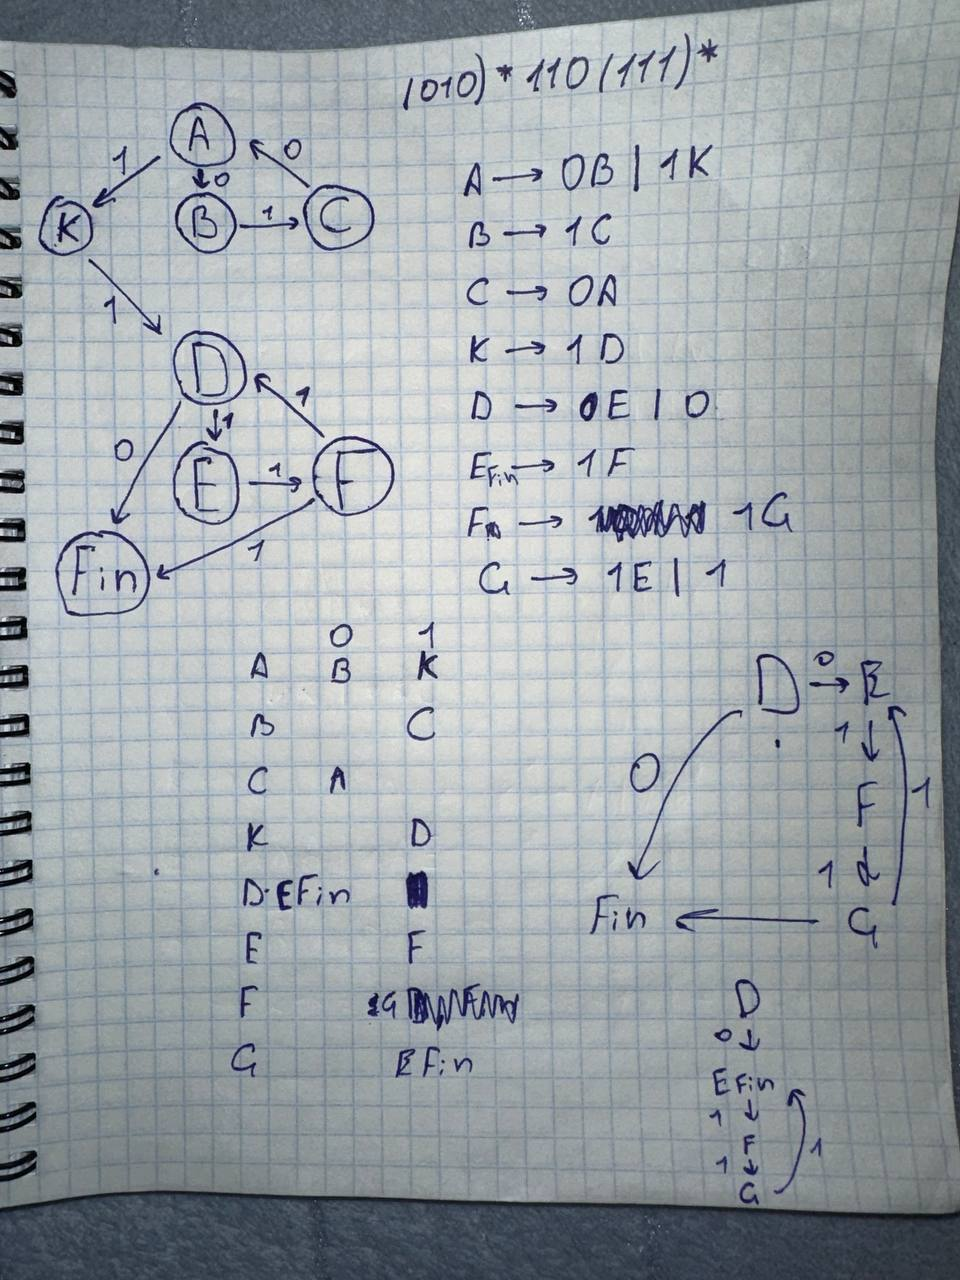 (010)* 110(111)*
A
1
0
0
K
B
1
C
1
D
0
1
1
E
1
F
1
Fin
A → 0B | 1K
B → 1C
C → 0A
K → 1D
D → 0E | 0
E Fin → 1F
F → 1G
G → 1E | 1
0 1
A B K
B C
C A
K D
D EFin
E F
F G
G EFin
D 0 → E
0
1
F
1
1
Fin
G
D
0
E Fin
1
F
1
1
G